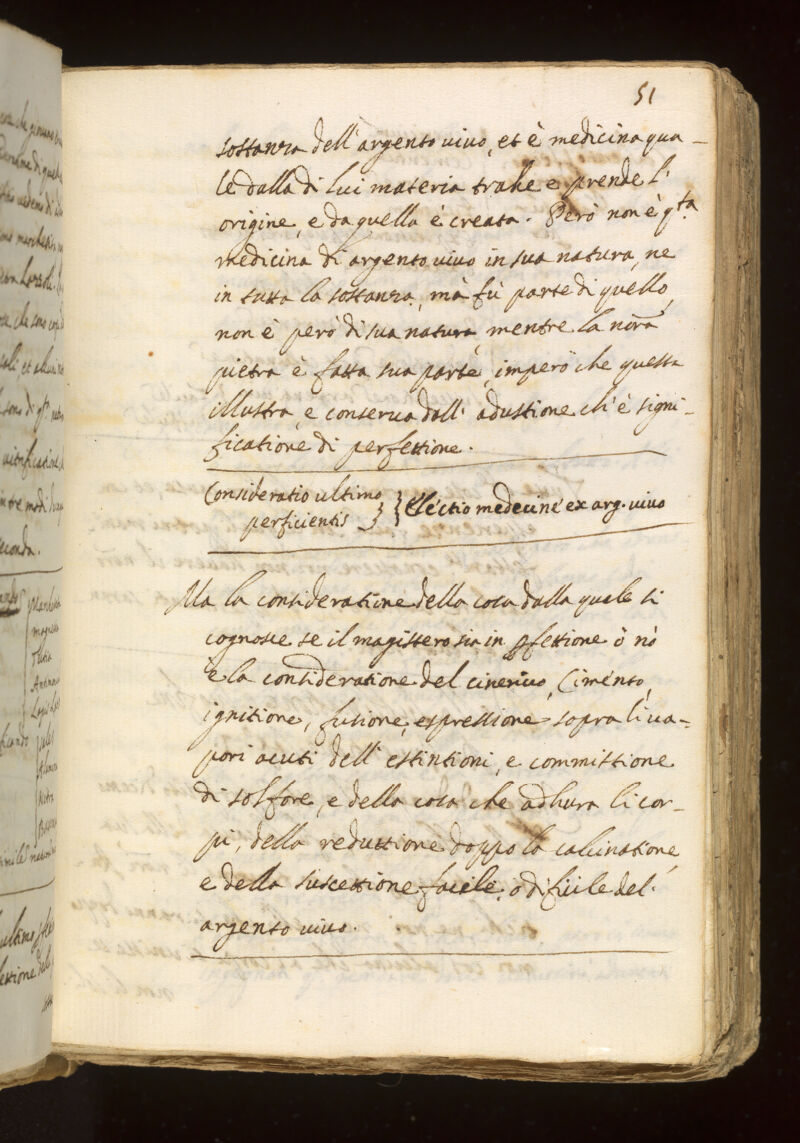 51
sostanza dell'argento vivo, et è medicina qua-
le dalla di lui materia trahe e prende l'
origine, e da quella è creata. Però non è q.ta
medicina di argento vivo in sua natura, ne
in tutta la sostanza, mà fù parte di quello,
non è però di sua natura, mentre la nŕa
pietra è fatta sua parte, imperò che questa
illustra, e conserva dall'adustione ch'è signi-
ficatione di perfettione.
Consideratio ultimo
perficientis } } Electio medecine ex arg. vivo
Ma la consideratione della cosa dalla quale si
cognosce se il magistero sia in pfettione ò nò
è la consideratione del cinericio, Cimento,
ignitione, fusione, espressione sopra li va-
pori acuti dell'estintioni, e commistione
di solfore, e della cosa che adhura li cor-
pi, della reduttione doppo la calcinatione,
e della suscettione facile, ò dificile del'
argento vivo.